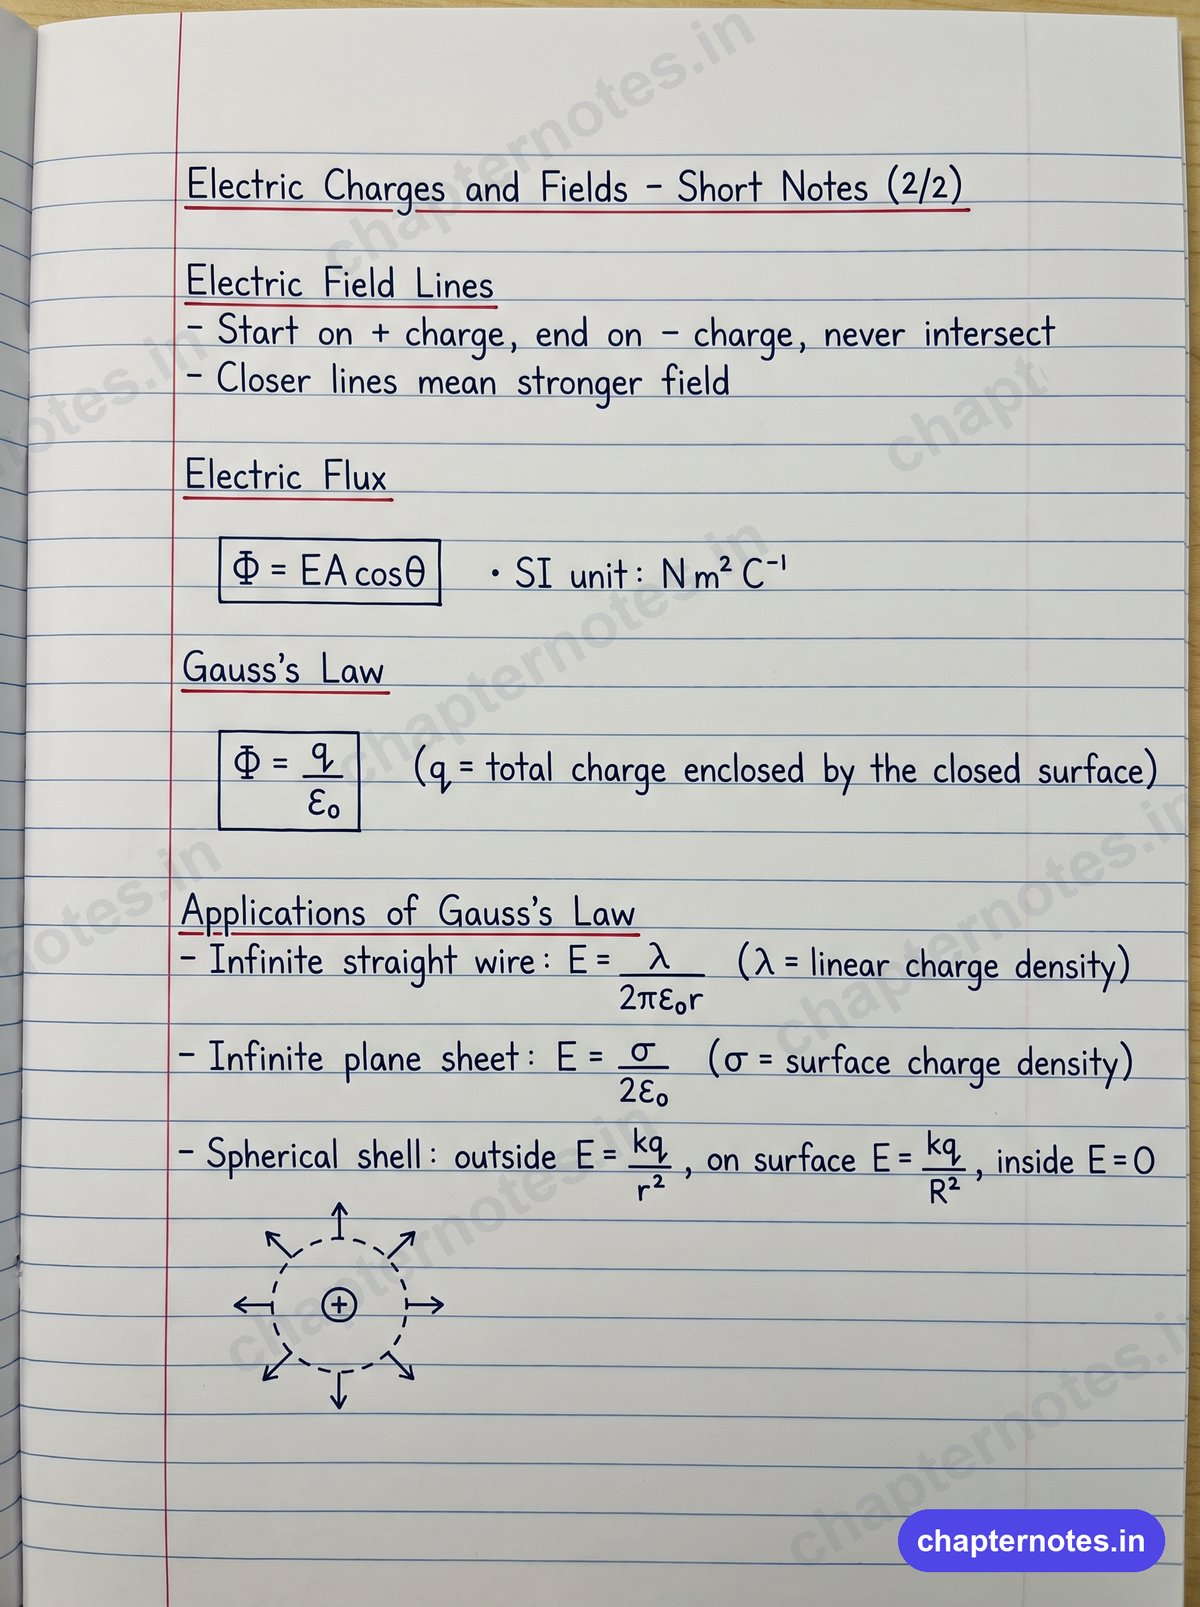 Electric Charges and Fields – Short Notes (2/2)
Electric Field Lines
– Start on + charge, end on – charge, never intersect
– Closer lines mean stronger field
Electric Flux
Φ = EA cosθ • SI unit: N m² C⁻¹
Gauss's Law
Φ = q/ε₀ (q = total charge enclosed by the closed surface)
Applications of Gauss's Law
– Infinite straight wire: E = λ/2πε₀r (λ = linear charge density)
– Infinite plane sheet: E = σ/2ε₀ (σ = surface charge density)
– Spherical shell: outside E = kq/r², on surface E = kq/R², inside E = 0
+
chapternotes.in